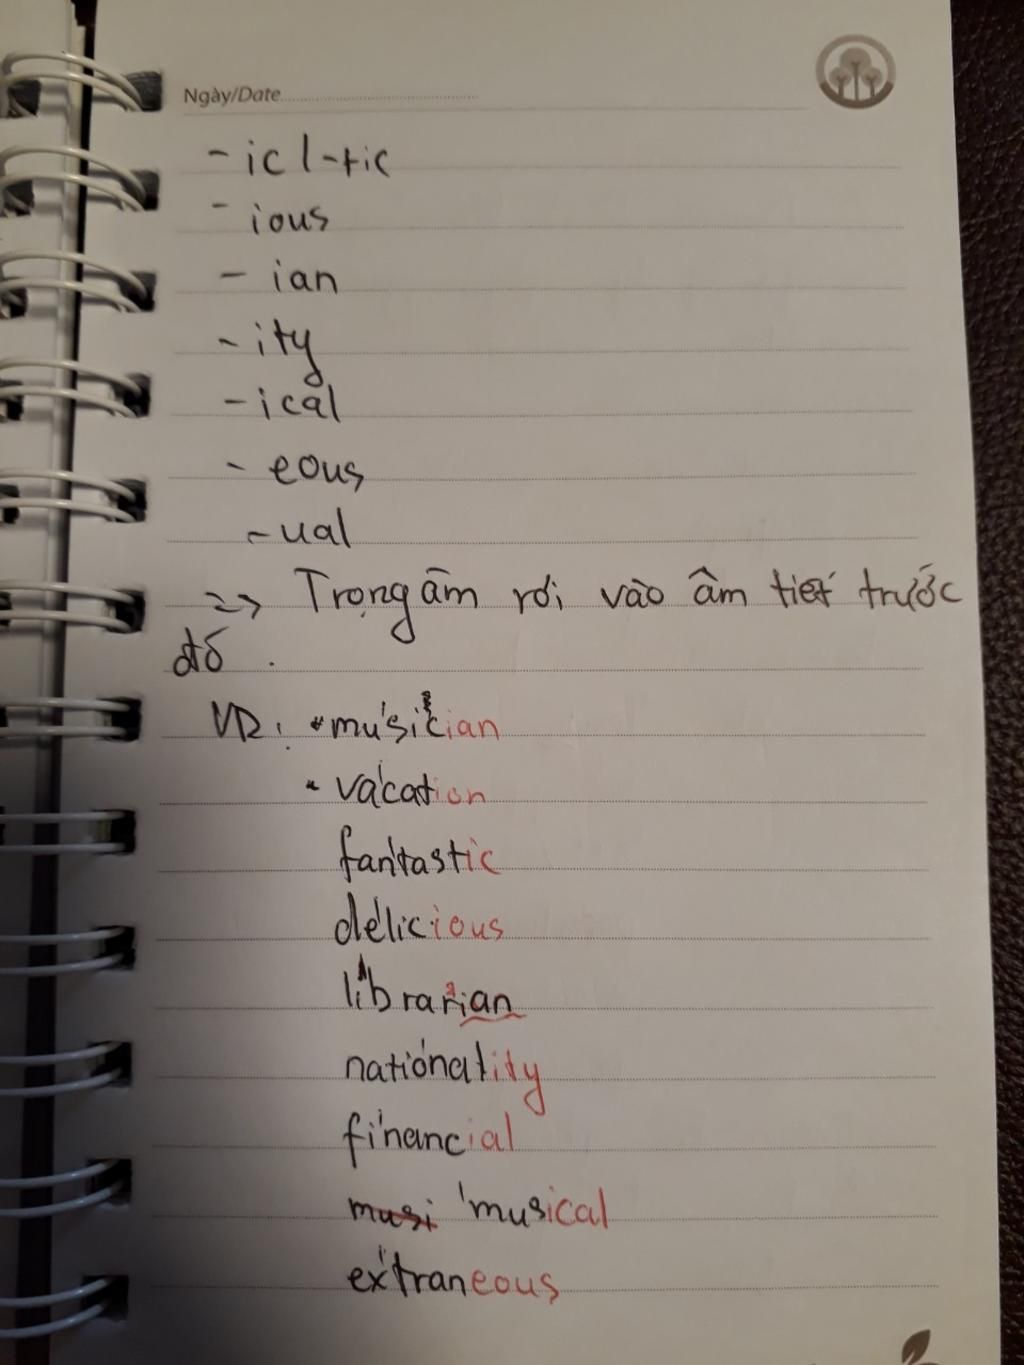 Ngày/Date
- ic / -tic
- ious
- ian
- ity
- ical
- eous
- ual
=> Trọng âm rơi vào âm tiết trước
đó.
VD: • mu'sician
• va'cation
fan'tastic
de'licious
li'brarian
natio'nality
fi'nancial
musi 'musical
ex'traneous